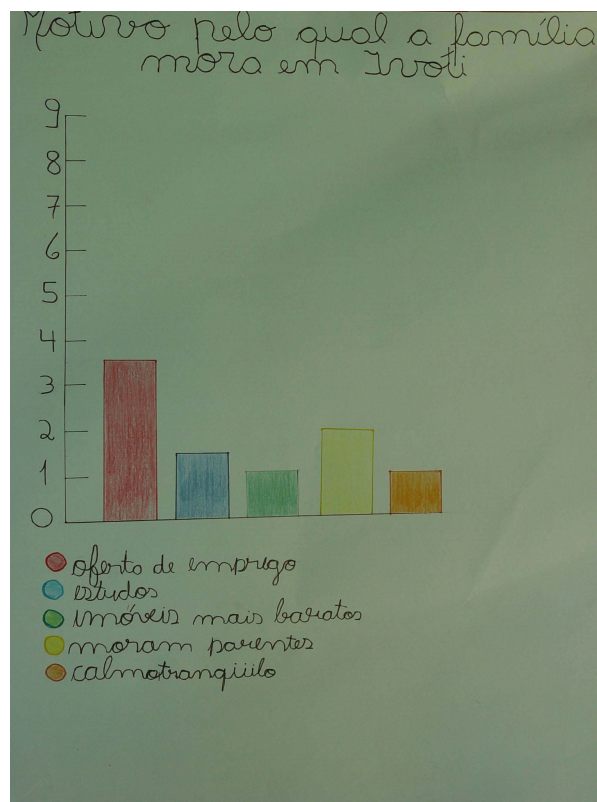 Motivo pelo qual a família
mora em Ivoti
9
8
7
6
5
4
3
2
1
0
oferta de emprego
estudos
imóveis mais baratos
moram parentes
calmo,tranqüilo